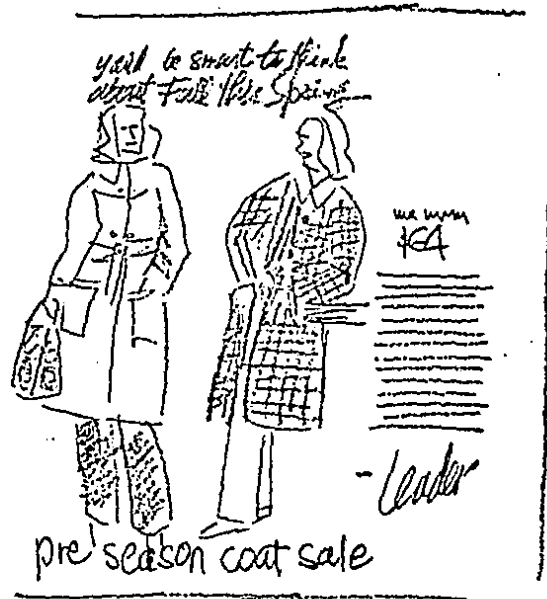 you'll be smart to think
about Fall this Spring
$64
Leader
pre season coat sale